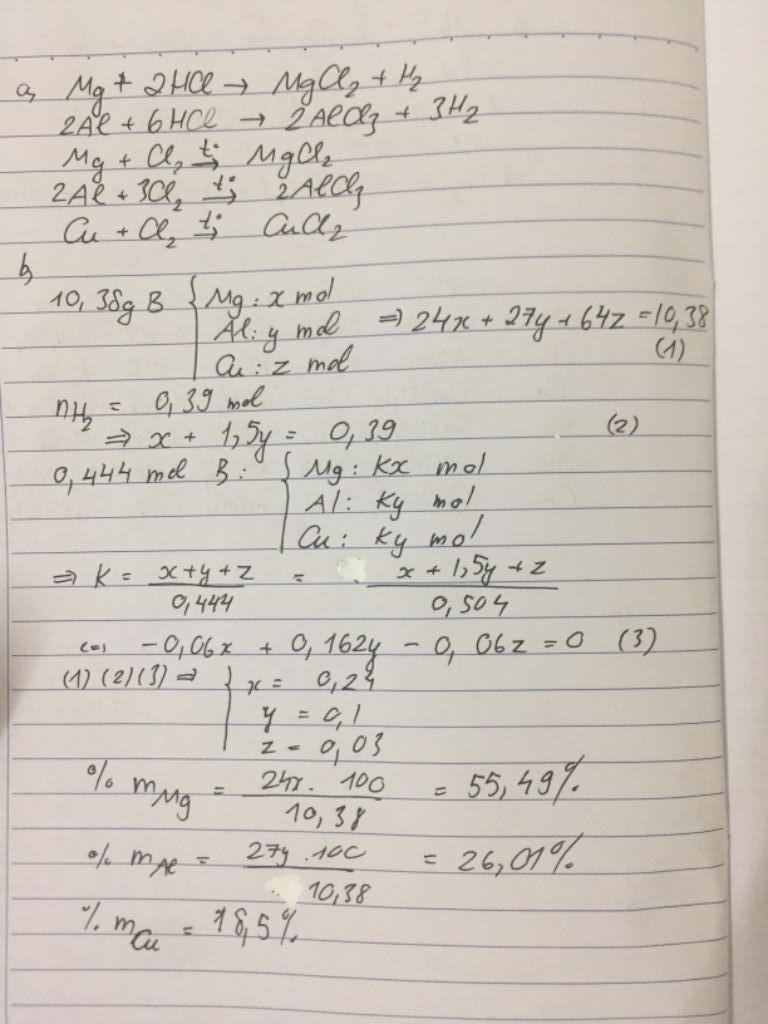 a, Mg + 2HCl → MgCl2 + H2
2Al + 6HCl → 2AlCl3 + 3H2
Mg + Cl2 t°→ MgCl2
2Al + 3Cl2 t°→ 2AlCl3
Cu + Cl2 t°→ CuCl2
b,
10,38g B { Mg: x mol
Al: y mol ⇒ 24x + 27y + 64z = 10,38
Cu: z mol (1)
nH2 = 0,39 mol
⇒ x + 1,5y = 0,39 (2)
0,444 mol B: { Mg: Kx mol
Al: Ky mol
Cu: Ky mol
⇒ K = x+y+z / 0,444 = x + 1,5y + z / 0,504
<=> -0,06x + 0,162y - 0,06z = 0 (3)
(1) (2) (3) ⇒ { x = 0,24
y = 0,1
z = 0,03
% mMg = 24x . 100 / 10,38 = 55,49%
% mAl = 27y .100 / 10,38 = 26,01%
% mCu = 18,5%